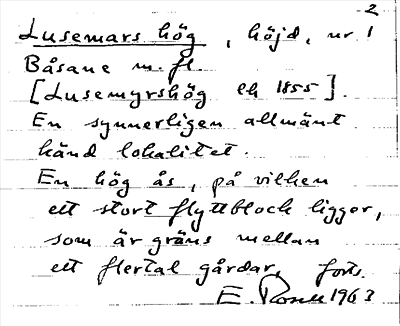 2
Lusemars hög, höjd, nr 1
Båsane m.fl.
[Lusemyrshög ek 1855].
En synnerligen allmänt
känd lokalitet.
En hög ås, på vilken
ett stort flyttblock ligger,
som är gräns mellan
ett flertal gårdar, forts.
E. 1963